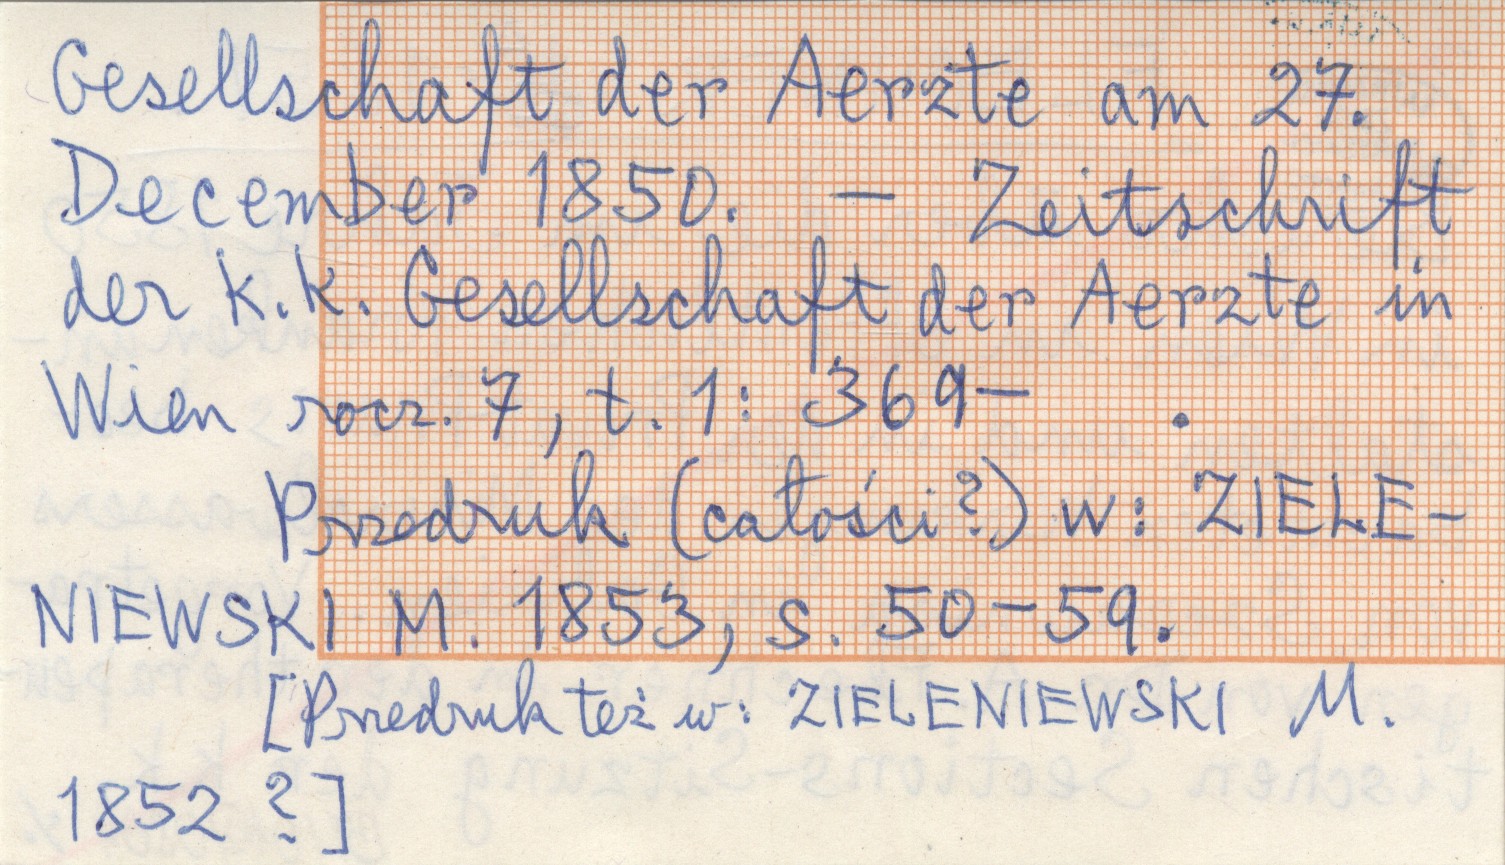 Gesellschaft der Aerzte am 27.
December 1850. — Zeitschrift
der k.k. Gesellschaft der Aerzte in
Wien rocz. 7, t. 1: 369— .
Przedruk (całości?) w: ZIELE-
NIEWSKI M. 1853, s. 50—59.
[Przedruk też w: ZIELENIEWSKI M.
1852 ?]